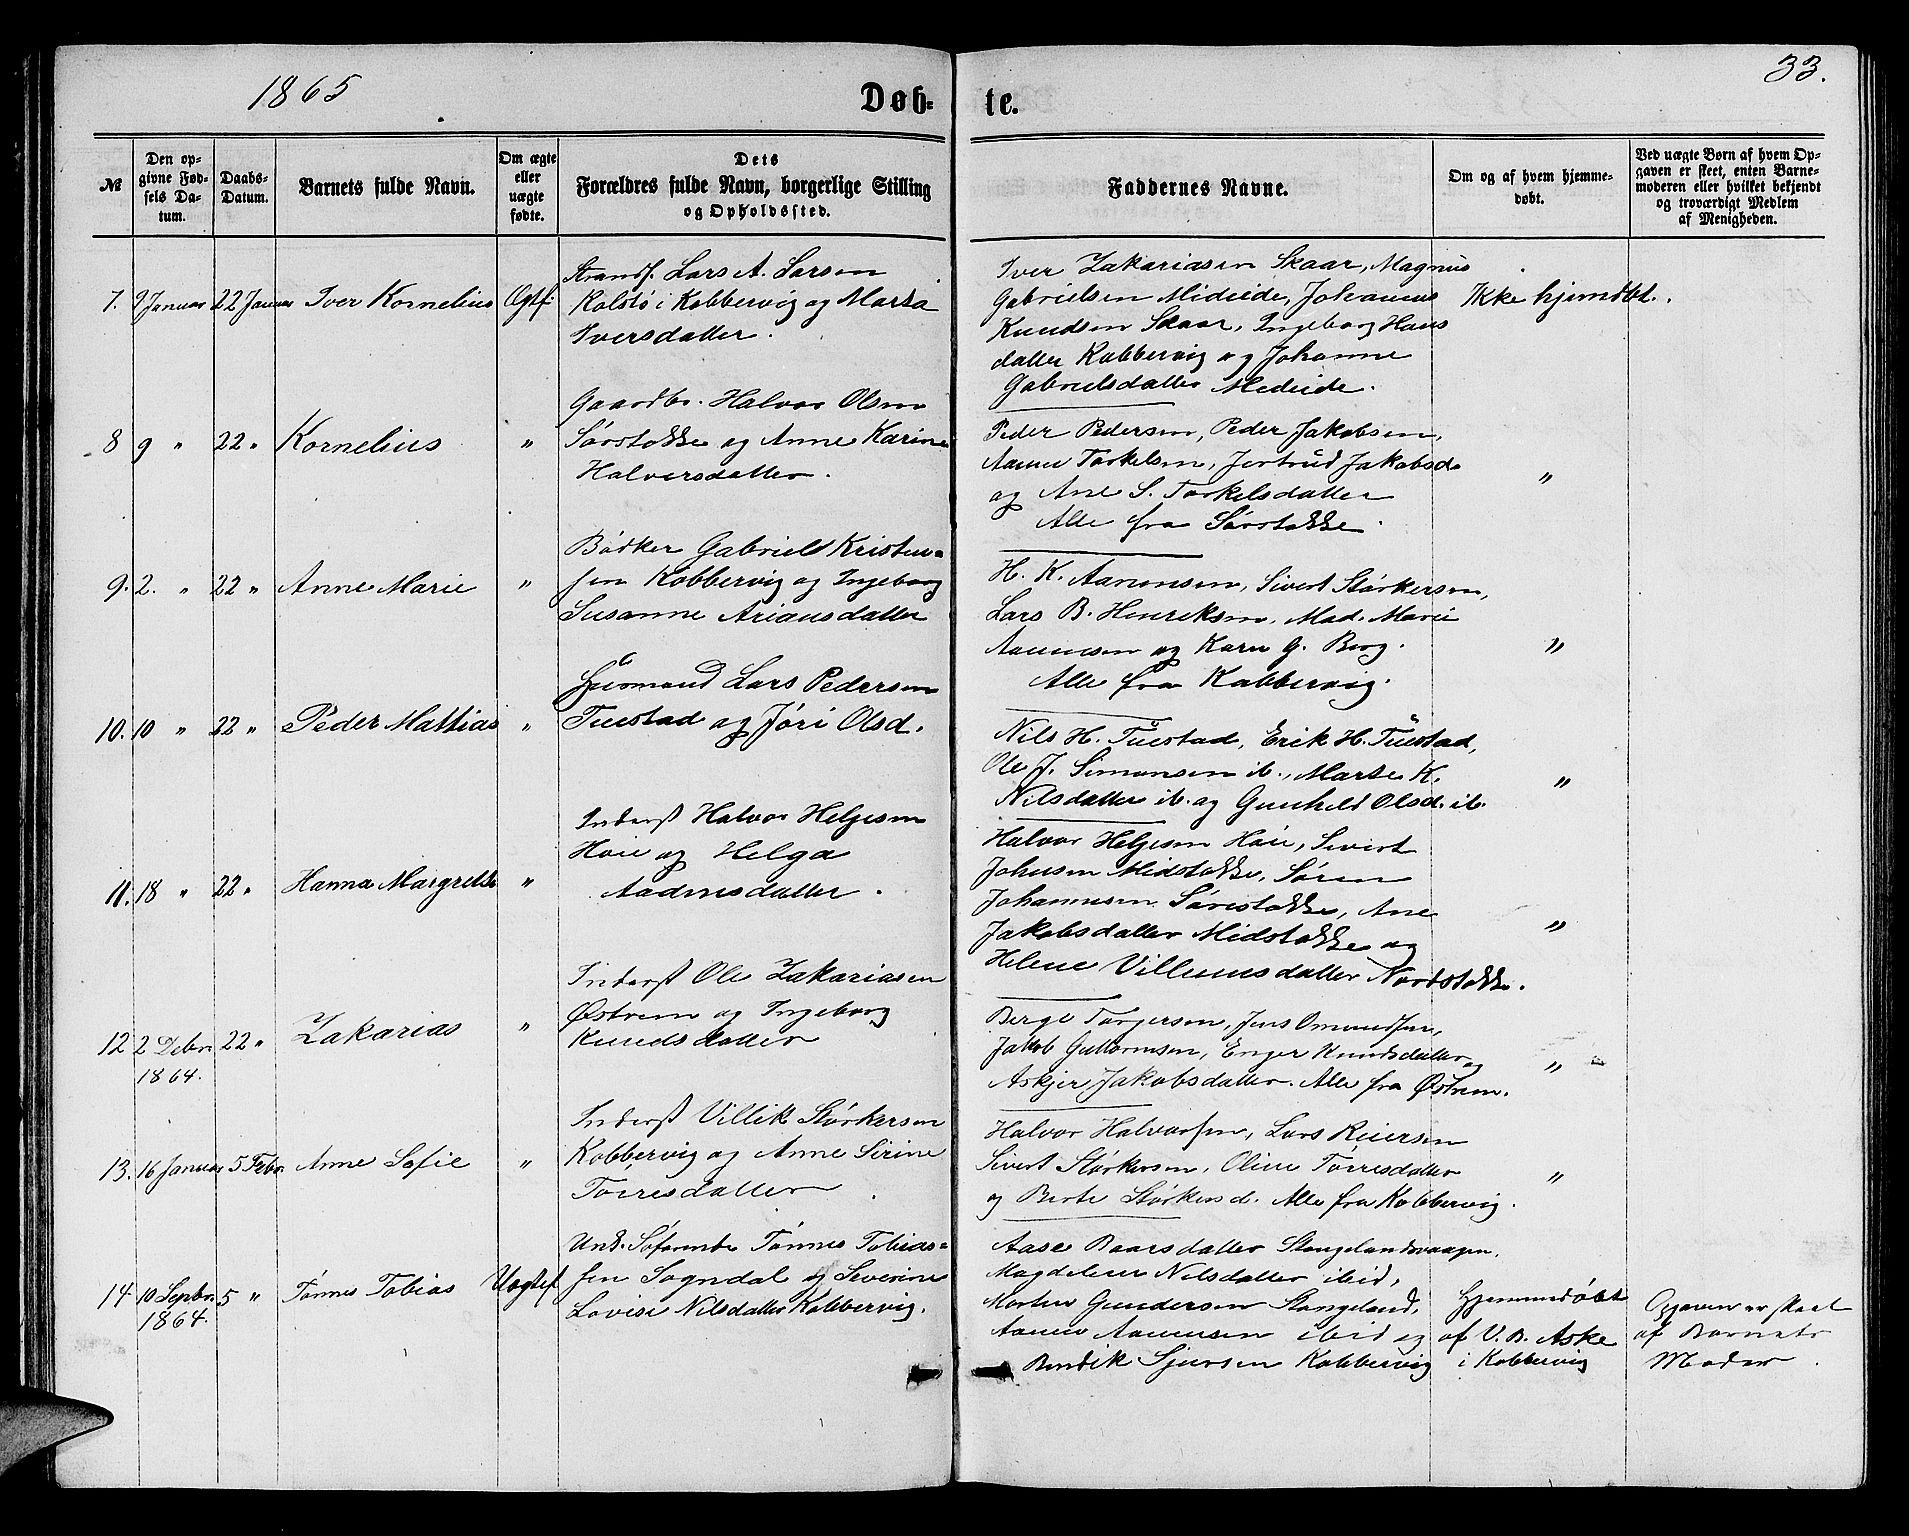 1865
Døb-
te.
33.
№
Den op-
givne Fød-
sels Da-
tum.
Daabs-
Datum.
Barnets fulde Navn.
Om ægte
eller
uægte
fødte.
Dets
Forældres fulde Navn, borgerlige Stilling
og Opholdssted.
Faddernes Navne.
Om og af hvem hjemme-
døbt.
Ved uægte Børn af hvem Op-
gaven er skeet, enten Barne-
moderen eller hvilket bekjendt
og troværdigt Medlem
af Menigheden.
7. 9 Januar 22 Januar Iver Kornelius Ægtf:
Strands. Lars A. Larsen
Kolstø i Kobbervig og Marta
Iversdatter.
Iver Zakariasen Skaar, Magnus
Gabrielsen Mideide, Johannes
Knudsen Skaar, Ingeborg Hans
datter Kobbervig og Johanne
Gabrielsdatter Medeide.
Ikke hjemdbt.
8 9 " 22 " Kornelius "
Gaardbr. Halvor Olsen
Sørstokke og Anne Karine
Halversdatter.
Peder Pedersen, Peder Jakobsen,
Aanen Torkelsen, Jertrud Jakobsd.
og Ane S. Torkelsdatter
Alle fra Sørstokke.
"
9. 2. " 22 " Anne Marie "
Bødker Gabriel Kristen-
sen Kobbervig og Ingeborg
Susanne Ariansdatter
H. K. Aanensen, Sivert Størkersen,
Lars B. Henriksen, Mad. Marie
Aanensen og Karn G. Berg.
Alle fra Kobbervig.
"
10. 10 " 22 " Peder Mattias "
Huusmand Lars Pedersen
Tuestad og Jøri Olsd.
Nils H. Tuestad, Erik H. Tuestad,
Ole J. Simonsen ib., Marte K.
Nilsdatter ib. og Gunhild Olsd. ib.
"
11. 18 " 22 " Hanna Margrethe "
Inderst Halvor Helgesen
Høie og Helga
Aadnesdatter.
Halvor Helgesen Høie, Sivert
Johnsen Midstokke, Søren
Johannesen Sørestokke, Ane
Jakobsdatter Midstokke og
Helene Villumsdatter Nordstokke.
"
12 2 Debr. 22 " Zakarias "
1864.
Inderst Ole Zakariasen
Østrem og Ingeborg
Knudsdatter
Berge Torgersen, Jens Omundsen,
Jakob Guttormsen, Enger Knudsdatter og
Askjer Jakobsdatter. Alle fra Østrem.
"
13. 16 Januar 5 Febr. Anne Sofie "
Inderst Villik Størkersen
Kobbervig og Anne Sirine
Tørresdatter
Halvor Halvorsen, Lars Reiersen
Sivert Størkersen, Oline Tørresdatter
og Berte Størkersd. Alle fra Kobbervig.
"
14 10 Septbr. 5 " Tønnes Tobias Uægtef
1864.
Und. Søfarende Tønnes Tobias-
sen Sogndal og Severine
Lovise Nilsdatter Kobbervig.
Aase Baarsdatter Stangelandsvaagen,
Magdelene Nilsdatter ibid,
Morten Gundersen Stangeland,
Aanen Aanensen ibid og
Bendik Sjursen Kobbervig
Hjemmedøbt
af V. B. Aske
i Kobbervig
Opgaven er skeet
af Barnets
Moder.